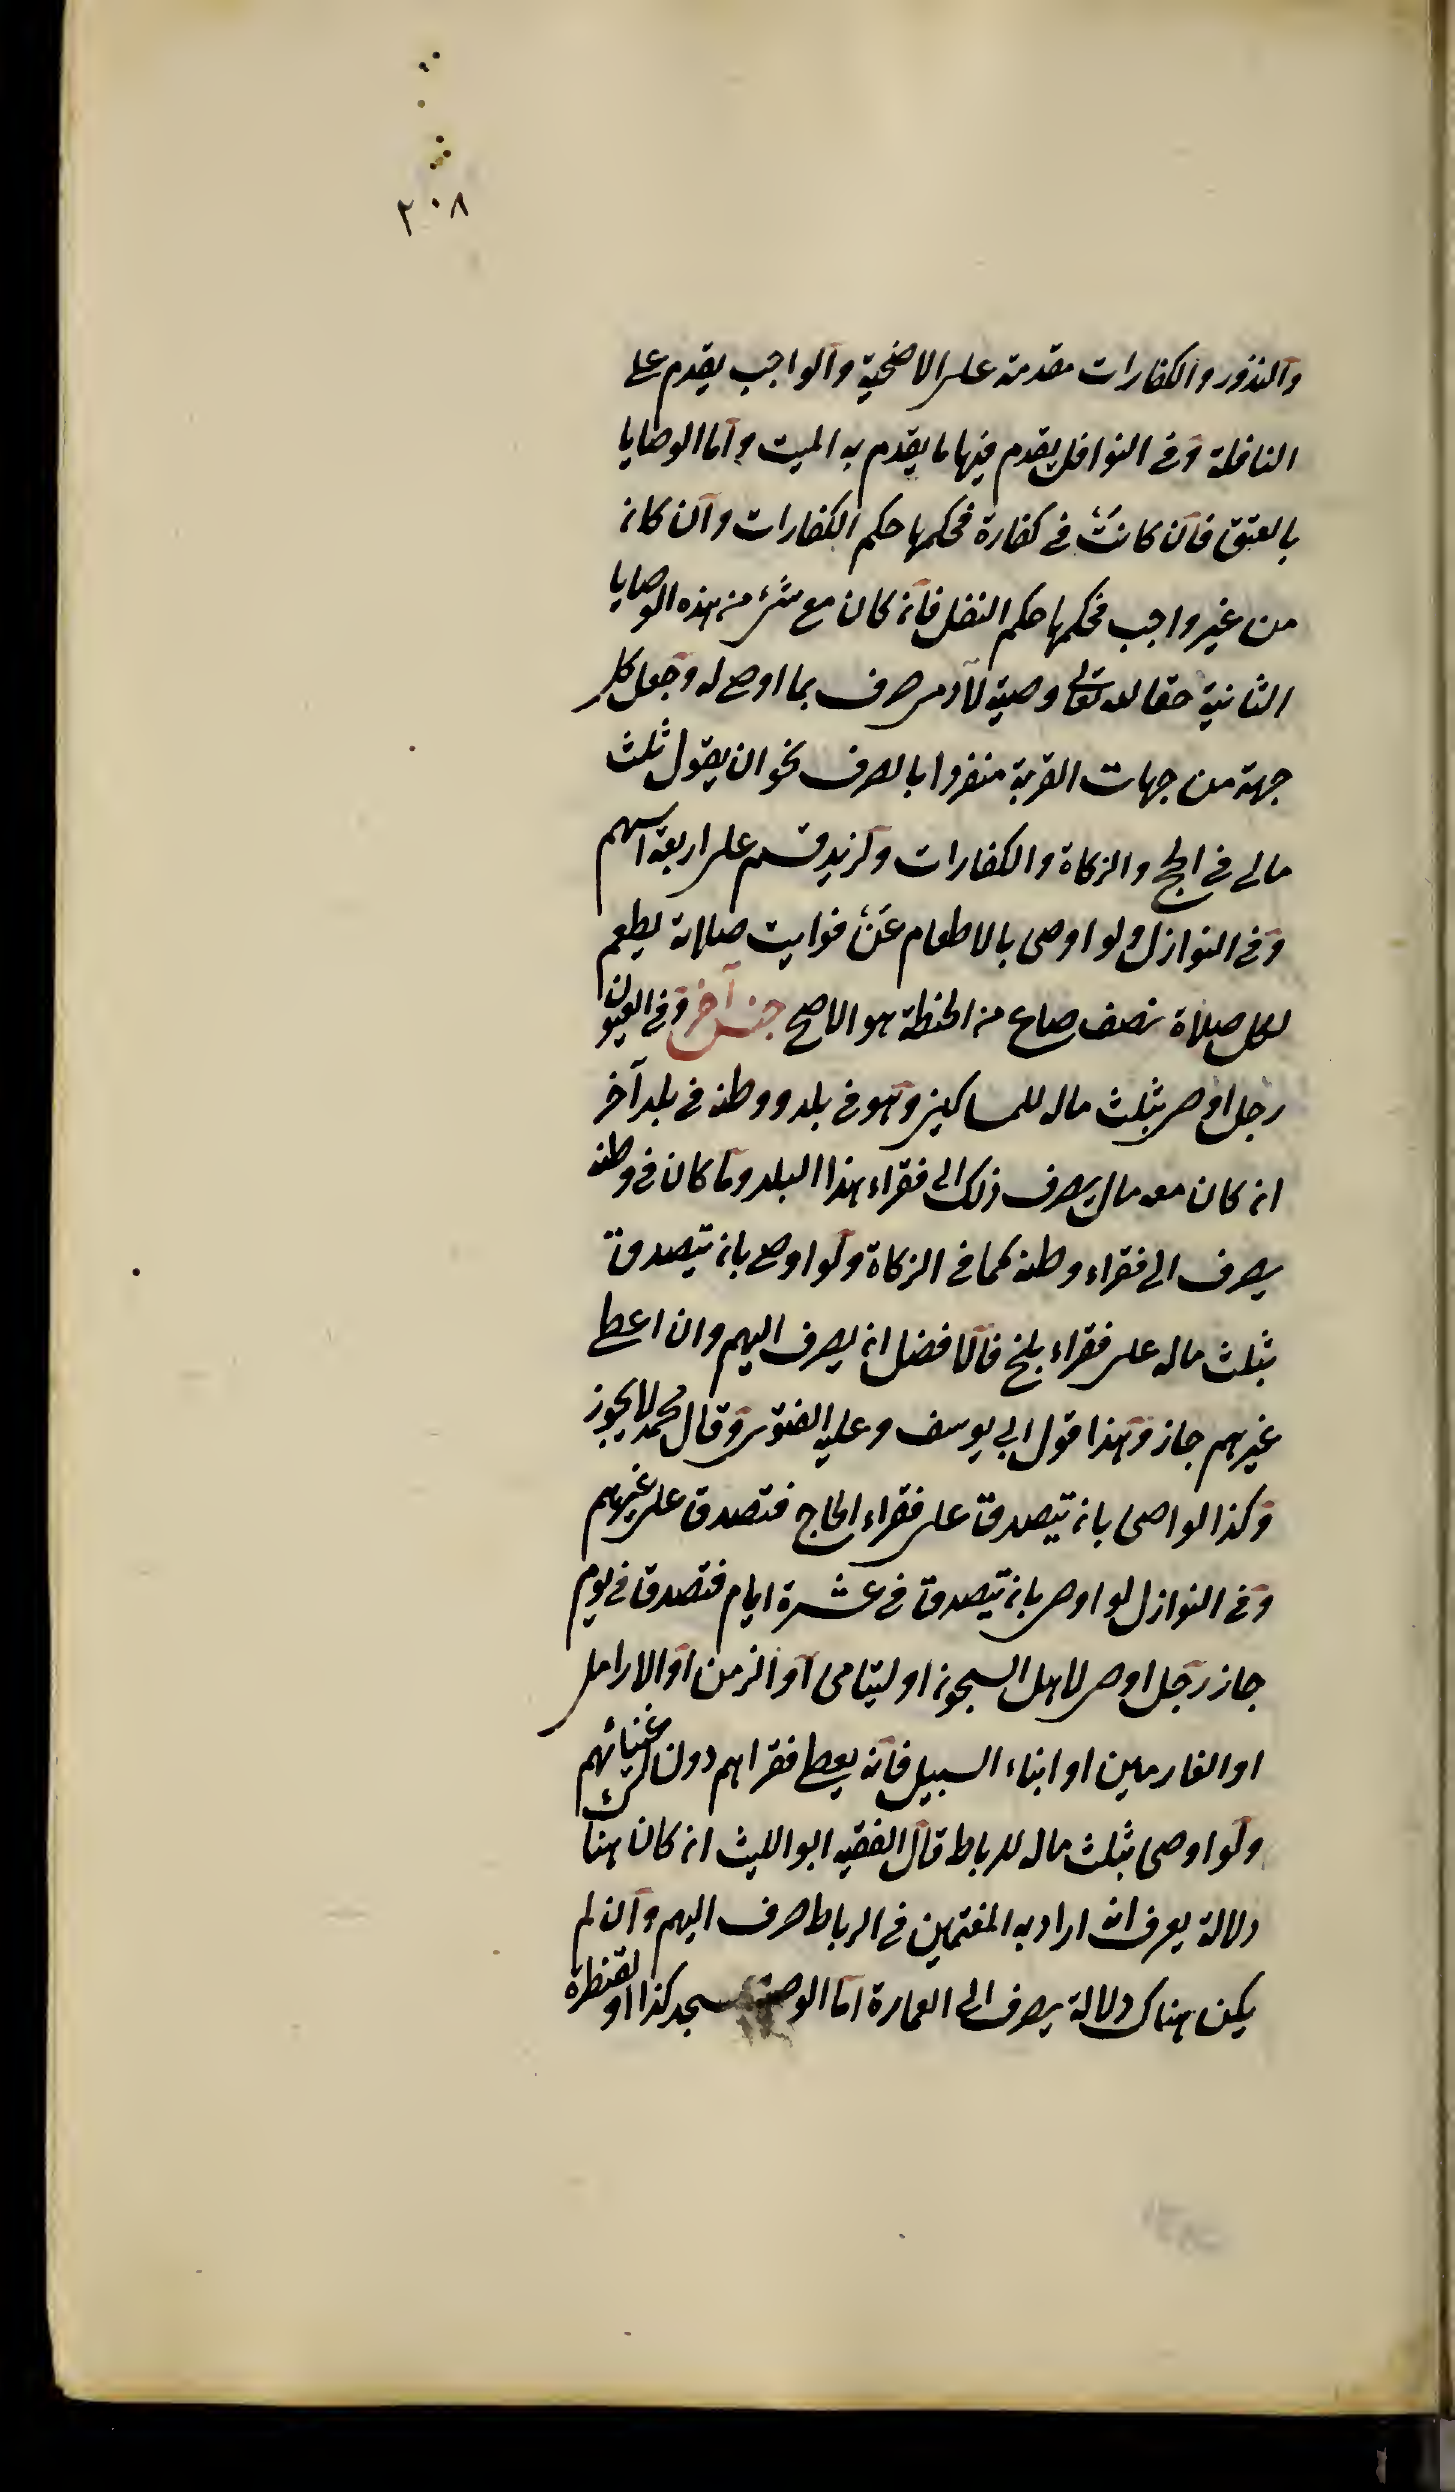 ٢٠٨
والنذور والكفارات مقدمة على الاضحية والواجب يقدم على
النافلة وفى النوافل يقدم فيها ما يقدم به الميت واما الوصايا
بالعتق فان كانت فى كفارة فحكمها حكم الكفارات وان كان
من غير واجب فحكمها حكم النفل فان كان مع شئ من هذه الوصايا
الثانية حقا لله تعالى وصية لآدمى صرف بما اوصى له وجعل كل
جهة من جهات القربة منفردا بالصرف نحو ان يقول ثلث
مالى فى الحج والزكاة والكفارات ولزيد قسم على اربعة اسهم
وفى النوازل ولو اوصى بالاطعام عن فوايت صلاته يطعم
لكل صلاة نصف صاع من الحنطة هو الاصح جنس آخر وفى العيون
رجل اوصى بثلث ماله للمساكين وهو فى بلد ووطنه فى بلد آخر
ان كان معه مال يصرف ذلك الى فقراء هذا البلد وما كان فى وطنه
يصرف الى فقراء وطنه كما فى الزكاة ولو اوصى بان يتصدق
بثلث ماله على فقراء بلخ فالافضل ان يصرف اليهم وان اعطى
غيرهم جاز وهذا قول ابى يوسف وعليه الفتوى وقال محمد لا يجوز
وكذا لو اوصى بان يتصدق على فقراء الحاج فتصدق على غيرهم
وفى النوازل لو اوصى بان يتصدق فى عشرة ايام فتصدق فى يوم
جاز رجل اوصى لاهل السجون او ليتامى او الزمن او الارامل
او الغارمين او ابناء السبيل فانه يعطى فقراهم دون اغنيائهم
ولو اوصى بثلث ماله للرباط قال الفقيه ابو الليث ان كان هناك
دلالة يعرف انه اراد به المقيمين فى الرباط صرف اليهم وان لم
يكن هناك دلالة يصرف الى العمارة اما الوصية لمسجد كذا او لقنطرة